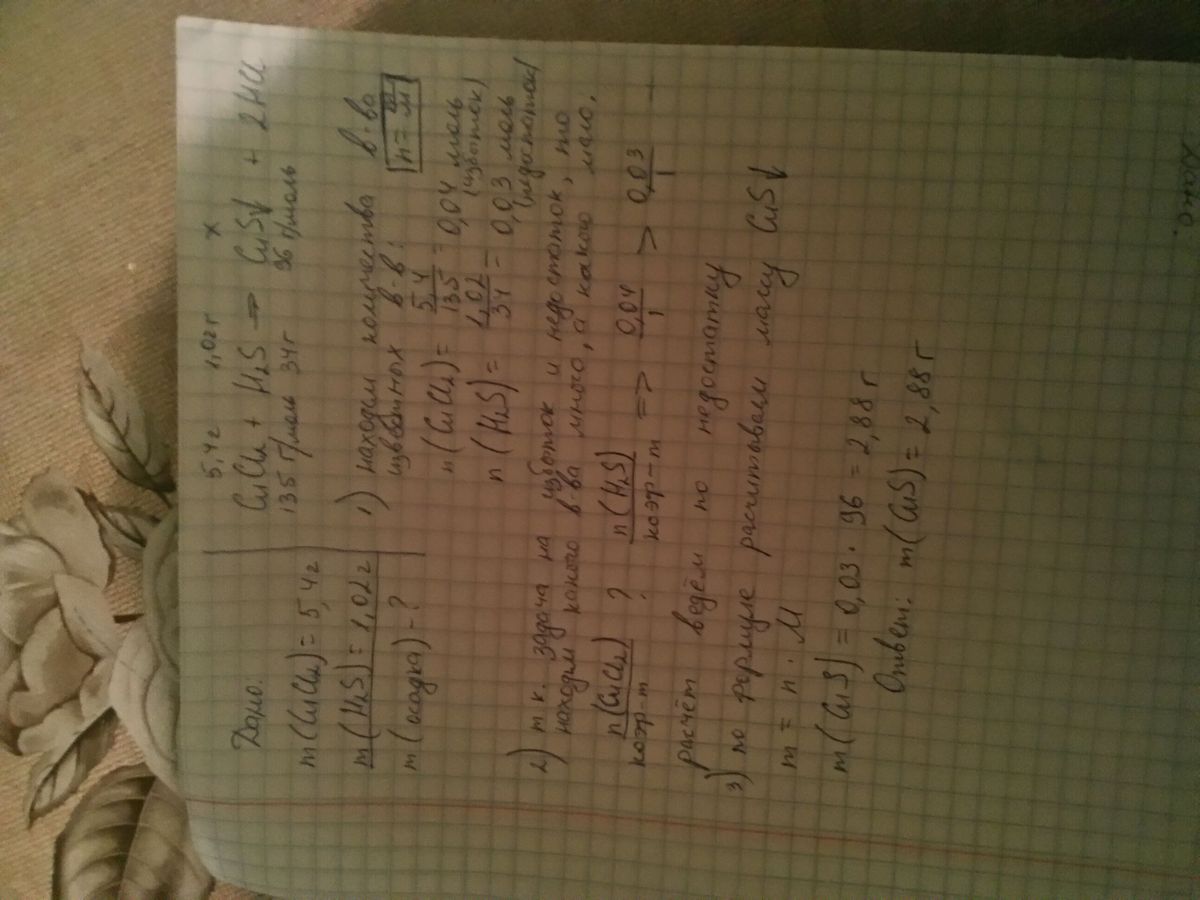 Дано:
m(CuCl₂) = 5,4г
m(H₂S) = 1,02г
m(осадка) - ?
5,4г 1,02г x
CuCl₂ + H₂S → CuS↓ + 2HCl
135 г/моль 34г 96 г/моль
1) находим количества в-ва
известных в-в:
n = m/M
n(CuCl₂) = 5,4/135 = 0,04 моль
(избыток)
n(H₂S) = 1,02/34 = 0,03 моль
(недостаток)
2) т.к. задача на избыток и недостаток, то
находим какого в-ва много, а какого мало.
n(CuCl₂)/коэф-т ? n(H₂S)/коэф-т => 0,04/1 > 0,03/1
расчёт ведём по недостатку
3) по формуле расчитываем массу CuS↓
m = n · M
m(CuS) = 0,03 · 96 = 2,88 г
Ответ: m(CuS) = 2,88 г